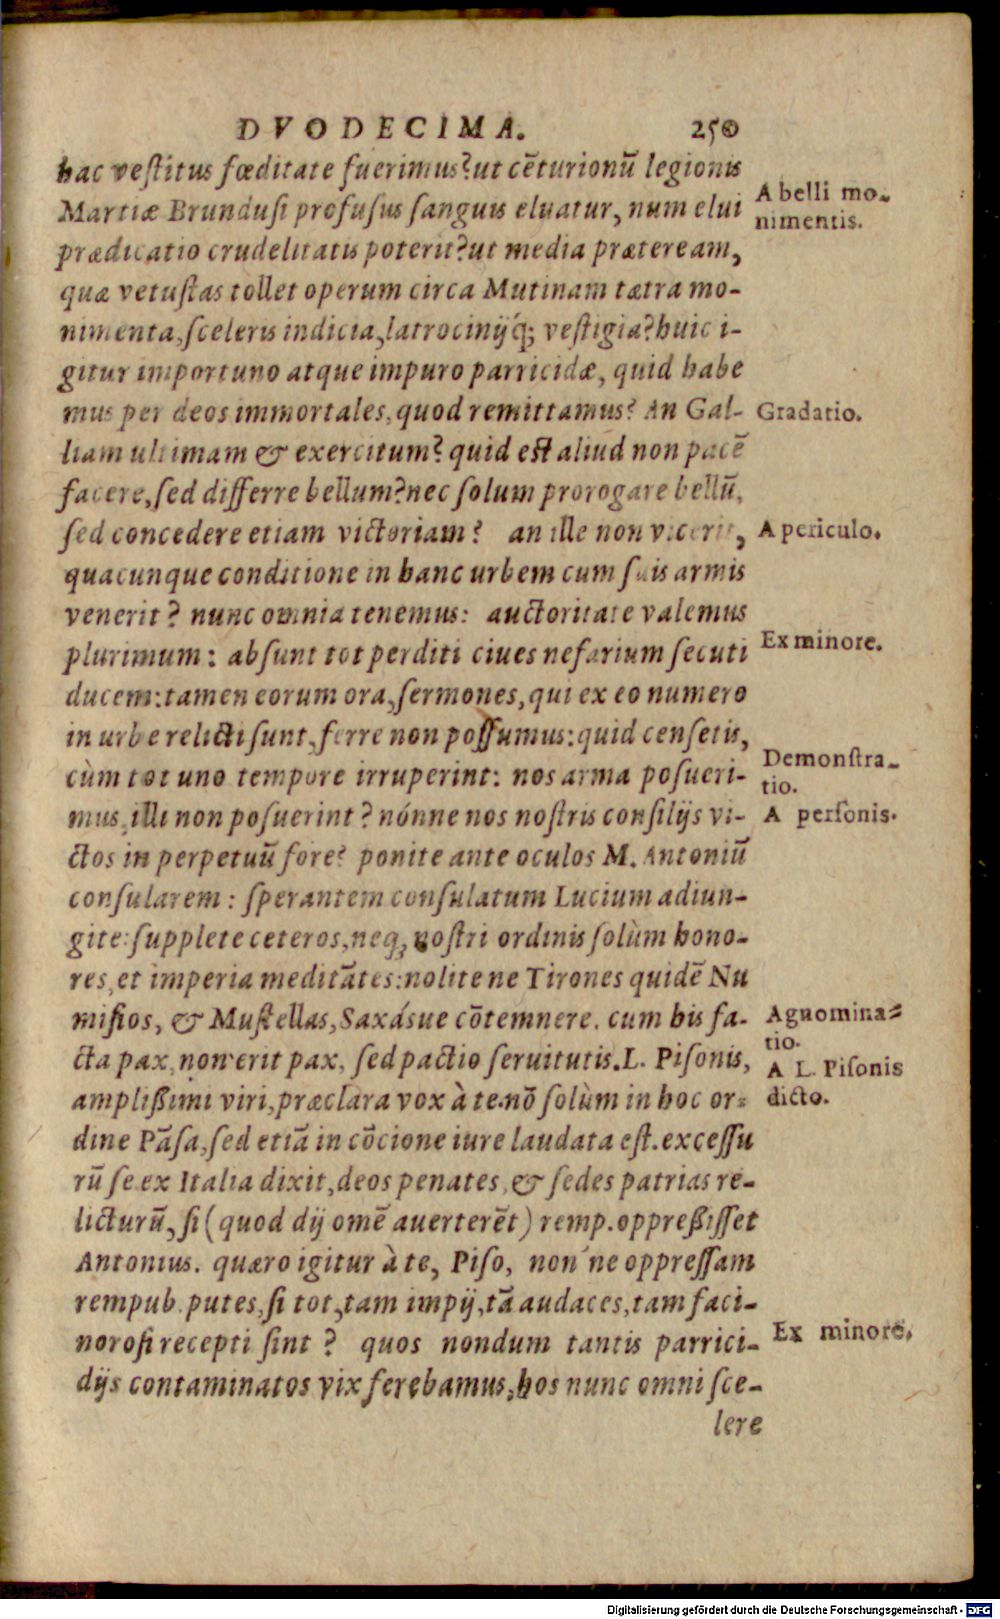 DVODECIMA. 250
hac veſtitus fœditate fuerimus? ut cẽturionũ legionis
Martiæ Brundusi profuſus ſanguis eluatur, num elui
prædicatio crudelitatis poterit? ut media præteream,
quæ vetuſtas tollet operum circa Mutinam tætra mo-
nimenta, ſceleris indicia, latrocinijq́; veſtigia? huic i-
gitur importuno atque impuro parricidæ, quid habe
mus per deos immortales, quod remittamus? An Gal-
liam ultimam & exercitum? quid eſt aliud non pacẽ
facere, ſed differre bellum? nec ſolum prorogare bellũ,
ſed concedere etiam victoriam? an ille non vicerit,
quacunque conditione in hanc urbem cum ſuis armis
venerit? nunc omnia tenemus: auctoritate valemus
plurimum: abſunt tot perditi ciues nefarium ſecuti
ducem: tamen eorum ora, ſermones, qui ex eo numero
in urbe relicti ſunt, ferre non poſſumus: quid cenſetis,
cùm tot uno tempore irruperint: nos arma poſueri-
mus, illi non poſuerint? nónne nos noſtris conſilijs vi-
ctos in perpetuũ fore? ponite ante oculos M. Antoniũ
conſularem: ſperantem conſulatum Lucium adiun-
gite: ſupplete ceteros, neq; noſtri ordinis ſolùm hono-
res, et imperia meditãtes: nolite ne Tirones quidẽ Nu
miſios, & Muſtellas, Saxásue cõtemnere. cum his fa-
cta pax, non erit pax, ſed pactio ſeruitutis. L. Piſonis,
amplißimi viri, præclara vox à te. nõ ſolùm in hoc or-
dine Pãſa, ſed etiã in cõcione iure laudata eſt. exceſſu
rũ ſe ex Italia dixit, deos penates, & ſedes patrias re-
licturũ, ſi (quod dij omẽ auerterẽt) remp. oppreßiſſet
Antonius. quæro igitur à te, Piſo, non'ne oppreſſam
rempub. putes, ſi tot, tam impij, tã audaces, tam faci-
noroſi recepti ſint? quos nondum tantis parrici-
dijs contaminatos vix ferebamus, hos nunc omni ſce-
lere
A belli mo-
nimentis.
Gradatio.
A periculo.
Ex minore.
Demonſtra-
tio.
A perſonis.
Agnomina-
tio.
A L. Piſonis
dicto.
Ex minore.
Digitalisierung gefördert durch die Deutsche Forschungsgemeinschaft - DFG